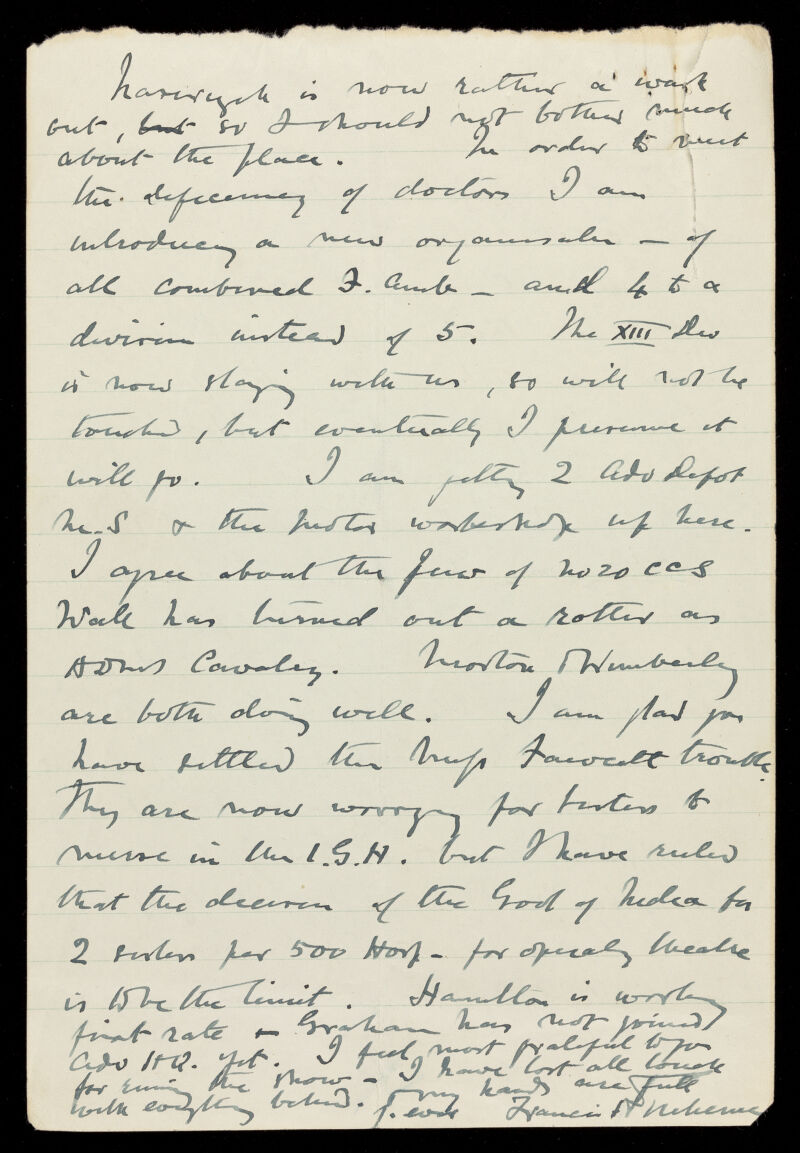 Nasiriyeh is now rather a wash
out, but so I should not bother much
about the place. In order to meet
the deficiency of doctors I am
introducing a new organisation – of
all combined F. Amb – and 4 to a
division instead of 5. The XIII Div
is now staying with us, so will not be
touched, but eventually I presume it
will go. I am getting 2 Adv Depot
M.S & the Motor workshop up here.
I agree about the few of No 20 CCS
Wall has turned out a rotter as
ADMS Cavalry. Morton & Wimberley
are both doing well. I am glad you
have settled the Miss Fawcett trouble.
They are now worrying for sisters to
nurse in the I.G.H. but I have ruled
that the decision of the Govt of India for
2 sisters per 500 Hosp – for operating theatre
is to be the limit. Hamilton is working
first rate – Graham has not joined
Adv HQ. yet. I feel most grateful to you
for running the show – I have lost all touch
with everything behind. my hands are full
Francis